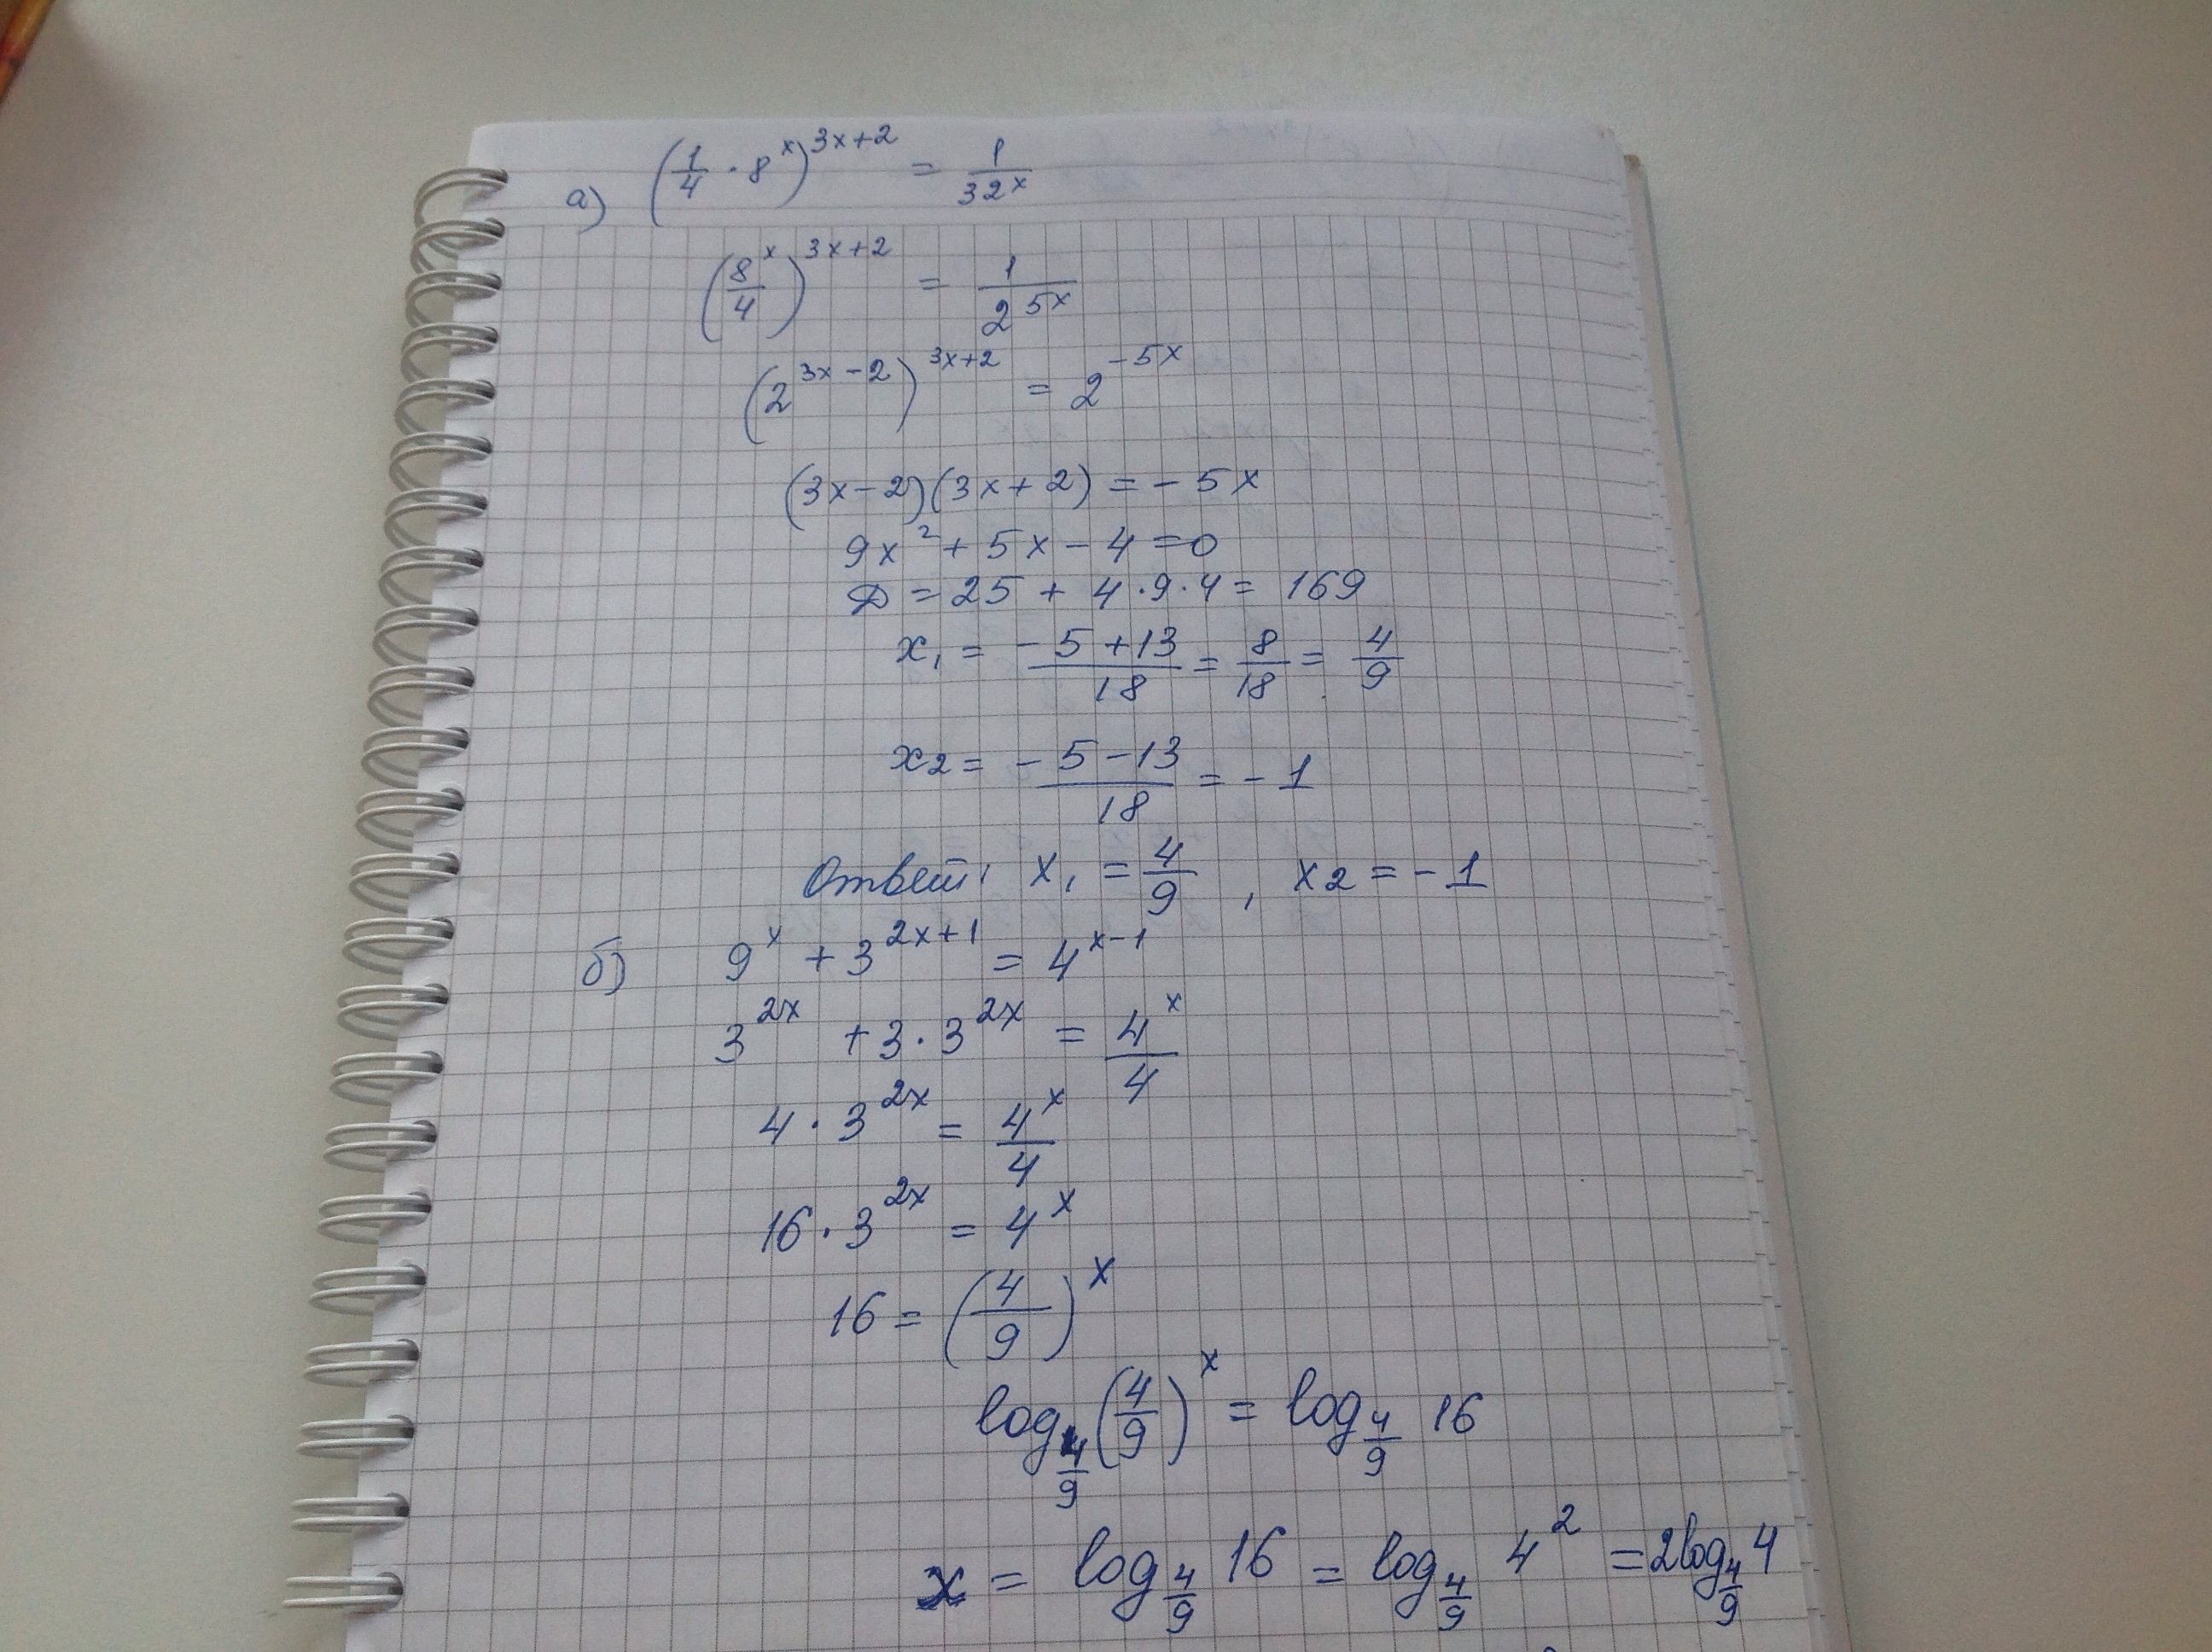 а) (1/4 · 8^x)^(3x+2) = 1/32^x
(8^x/4)^(3x+2) = 1/2^(5x)
(2^(3x-2))^(3x+2) = 2^(-5x)
(3x-2)(3x+2) = -5x
9x² + 5x - 4 = 0
D = 25 + 4·9·4 = 169
x₁ = (-5+13)/18 = 8/18 = 4/9
x₂ = (-5-13)/18 = -1
Ответ: x₁ = 4/9, x₂ = -1
б) 9^x + 3^(2x+1) = 4^(x-1)
3^(2x) + 3·3^(2x) = 4^x/4
4·3^(2x) = 4^x/4
16·3^(2x) = 4^x
16 = (4/9)^x
log_(4/9) (4/9)^x = log_(4/9) 16
x = log_(4/9) 16 = log_(4/9) 4² = 2log_(4/9) 4